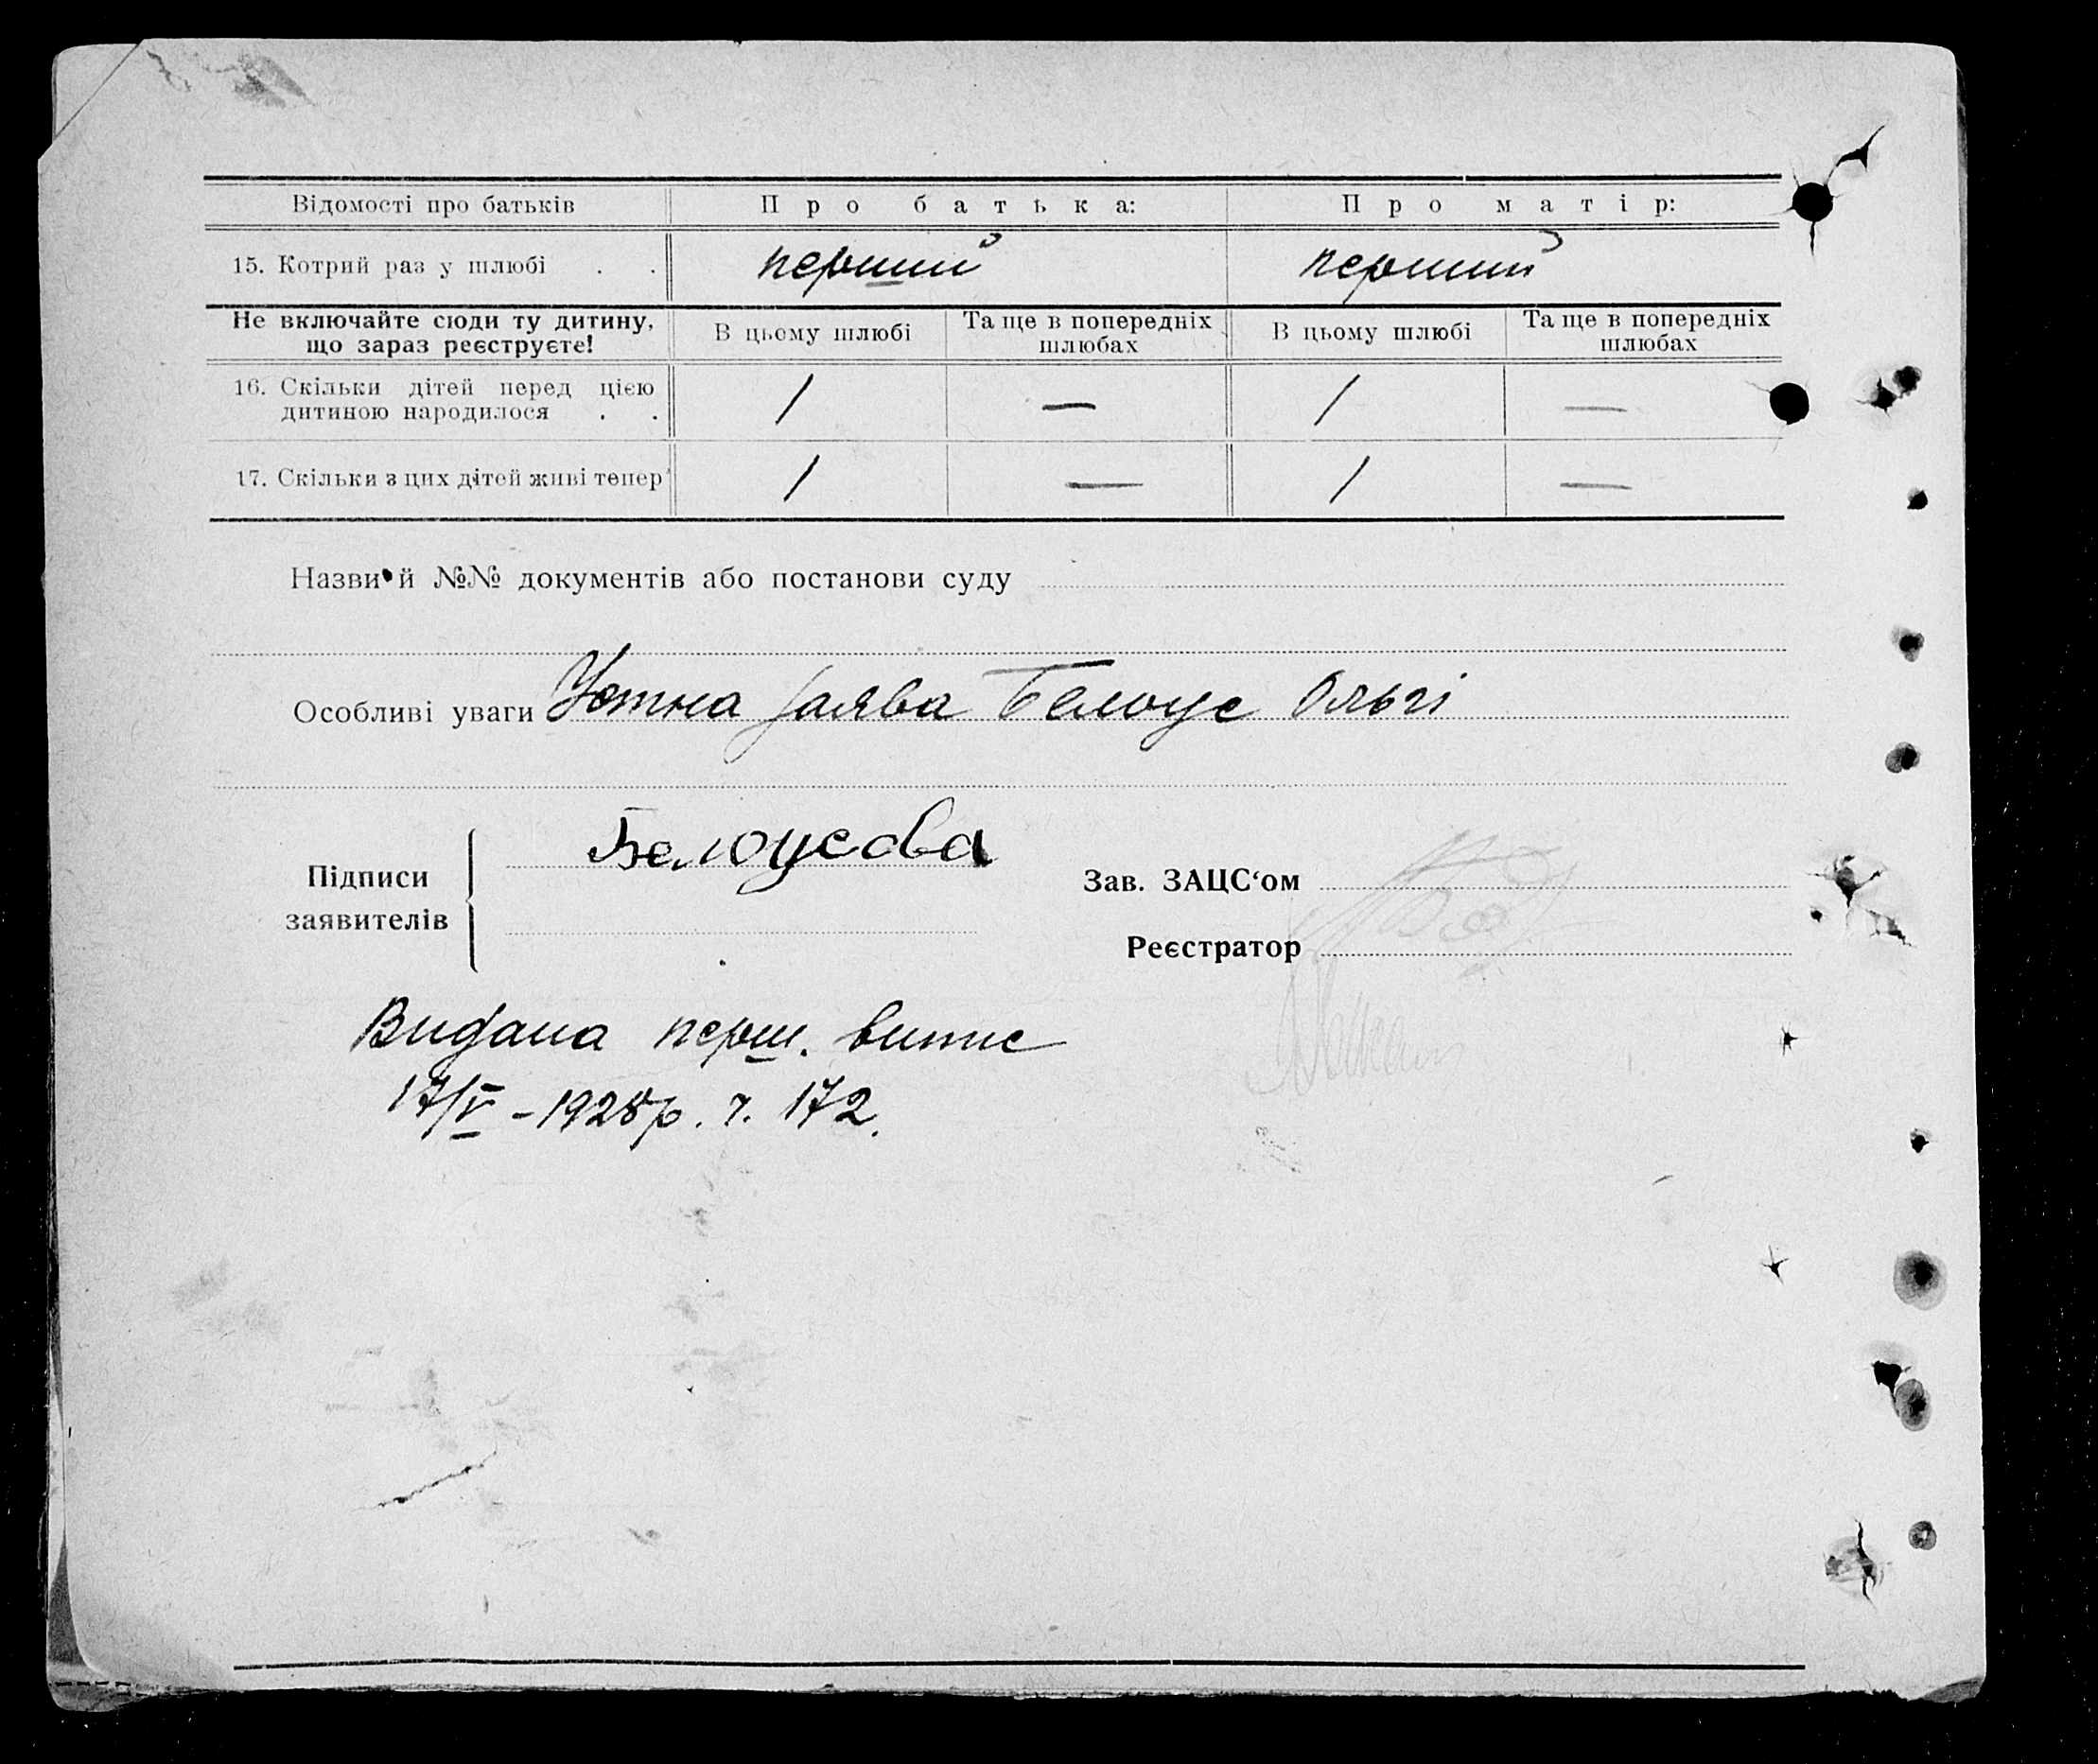 Відомості про батьків Про батька: Про матір:
15. Котрий раз у шлюбі . . перший перший
Не включайте сюди ту дитину, що зараз реєструєте! В цьому шлюбі Та ще в попередніх шлюбах В цьому шлюбі Та ще в попередніх шлюбах
16. Скільки дітей перед цією дитиною народилося . . 1 — 1 —
17. Скільки з цих дітей живі тепер 1 — 1 —
Назви й №№ документів або постанови суду
Особливі уваги Устна заява Белоус Ользі
Підписи заявителів
Белоусова
Зав. ЗАЦС‘ом
Реєстратор
Видана перш. витис
17/V – 1928 р. ч. 172.